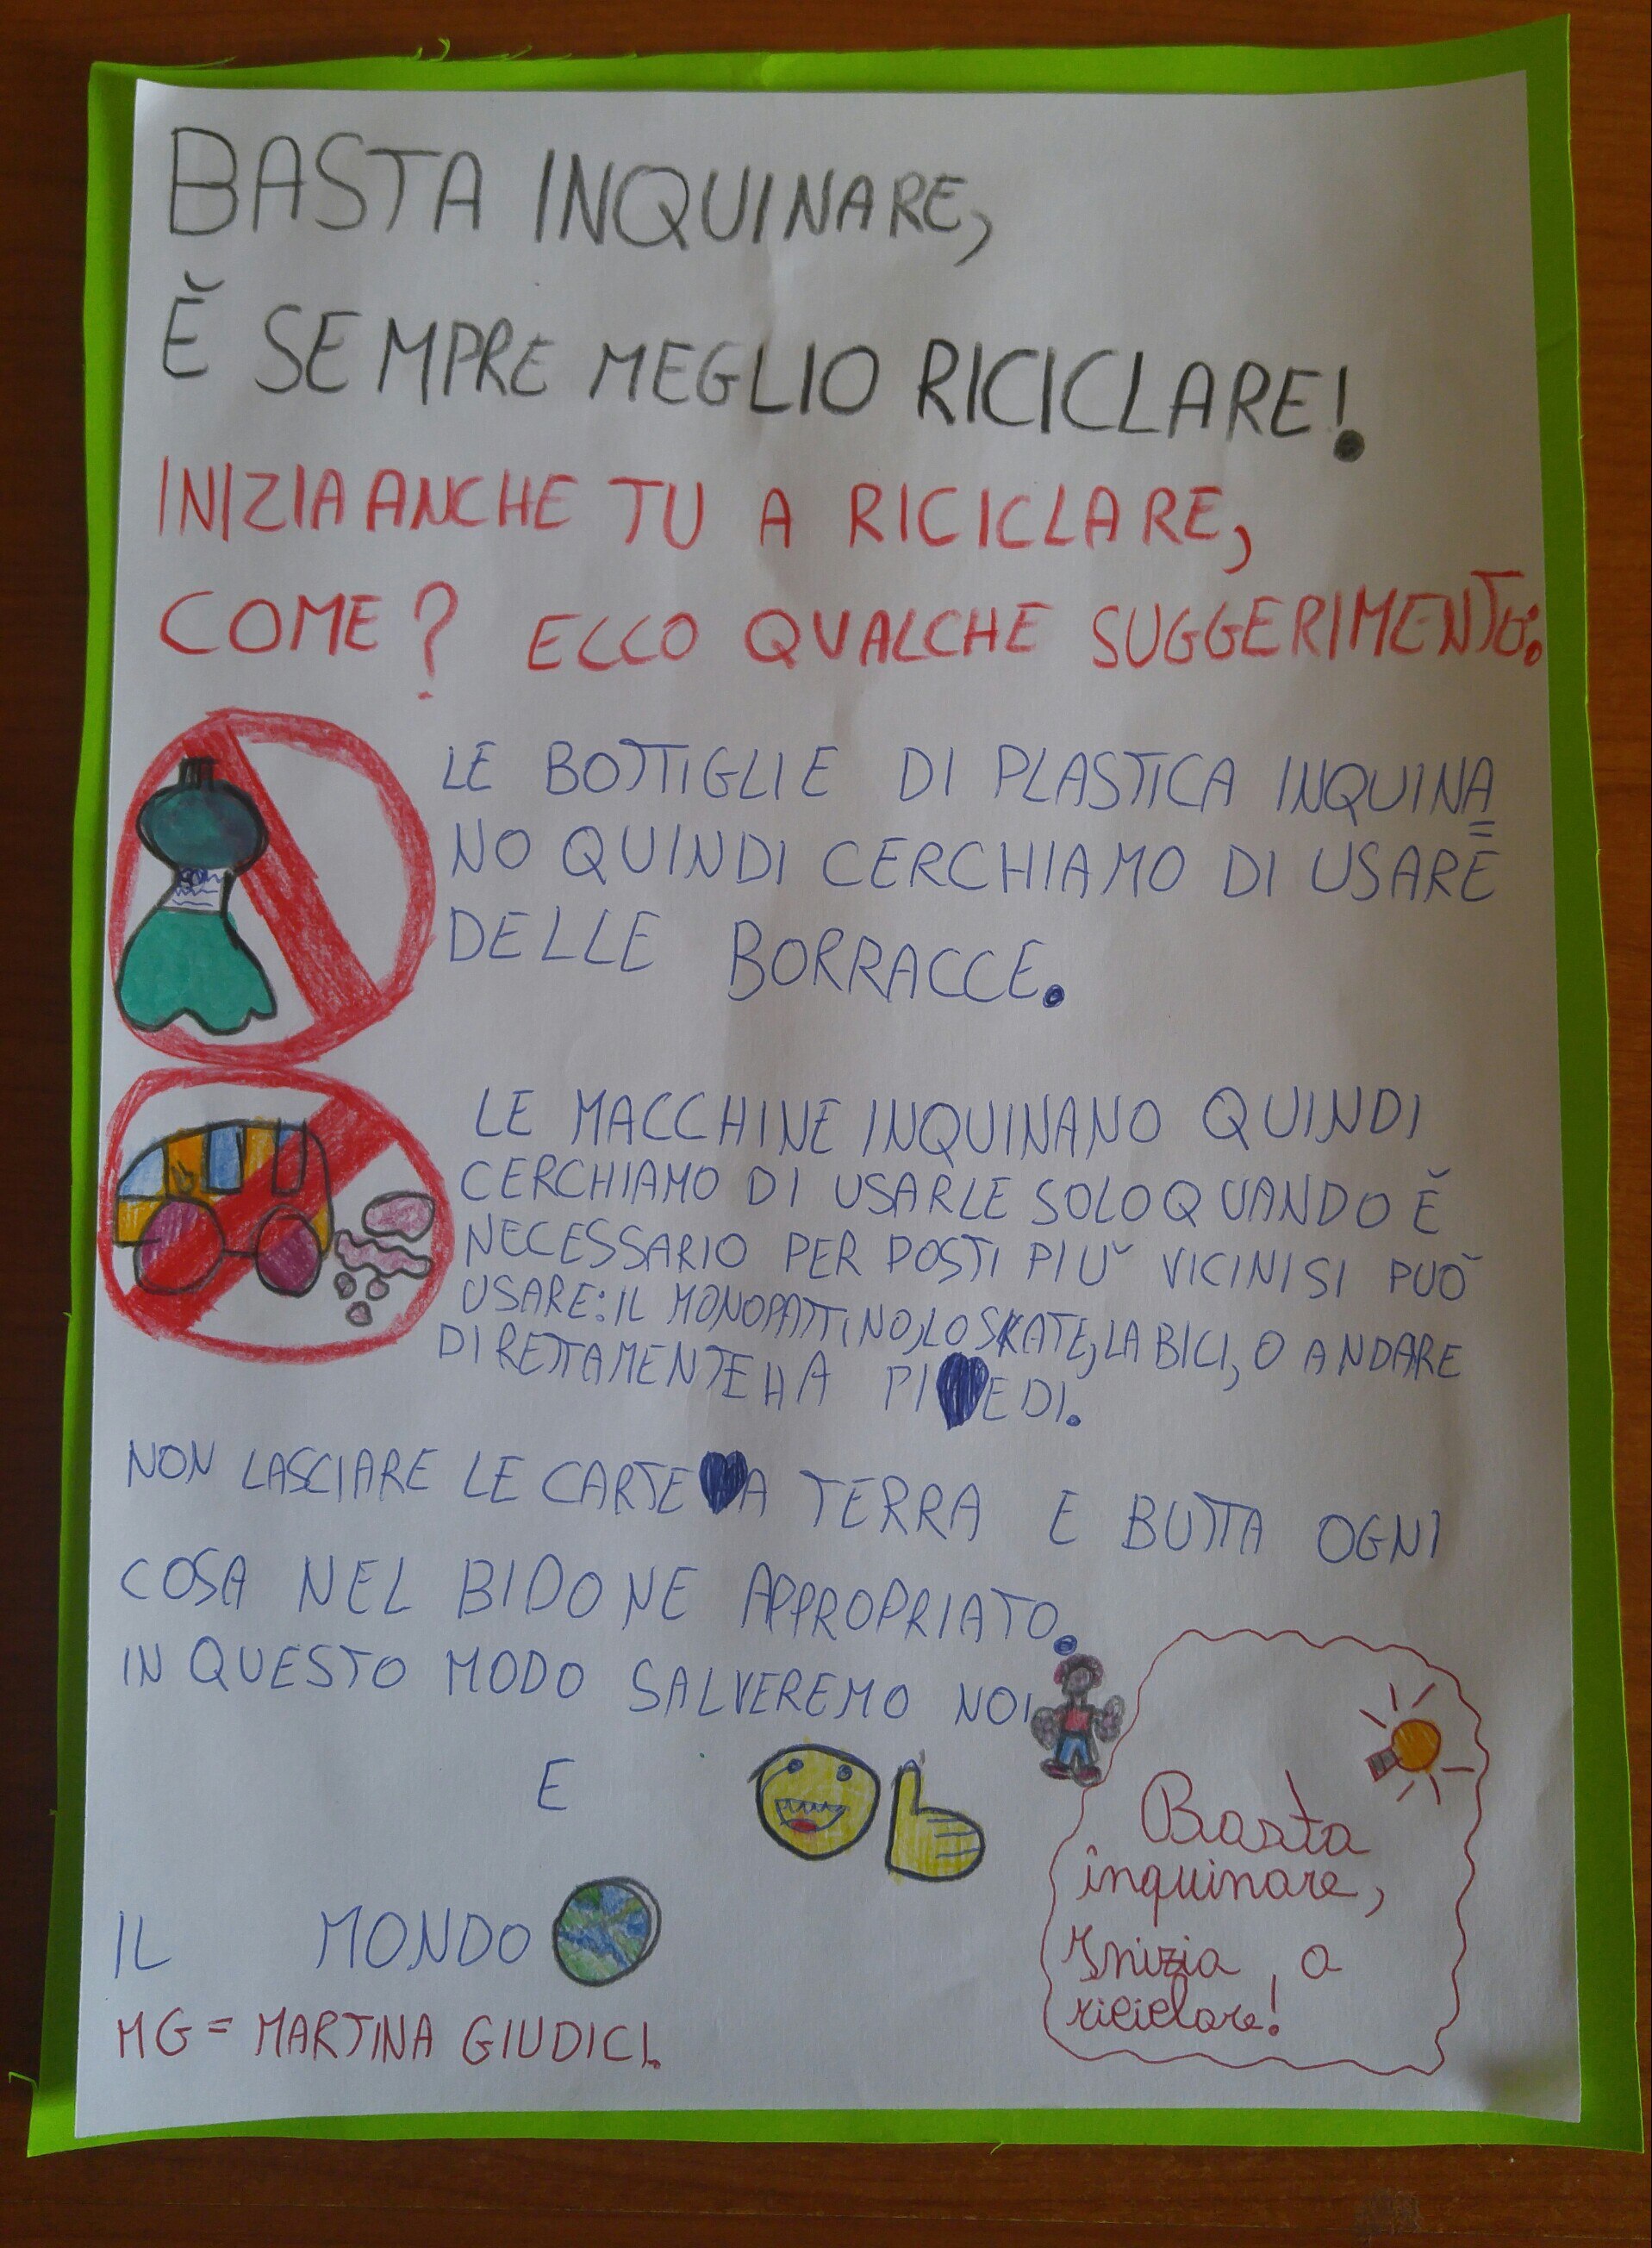 BASTA INQUINARE,
Ĕ SEMPRE MEGLIO RICICLARE!
INIZIA ANCHE TU A RICICLARE,
COME? ECCO QUALCHE SUGGERIMENTO:
LE BOTTIGLIE DI PLASTICA INQUINA=
NO QUINDI CERCHIAMO DI USARE
DELLE BORRACCE.
LE MACCHINE INQUINANO QUINDI
CERCHIAMO DI USARLE SOLO QUANDO Ĕ
NECESSARIO PER POSTI PIŬ VICINI SI PUÒ
USARE: IL MONOPATTINO, LO SKATE, LA BICI, O ANDARE
DIRETTAMENTE HA PI EDI.
NON LASCIARE LE CARTE A TERRA E BUTTA OGNI
COSA NEL BIDONE APPROPRIATO.
IN QUESTO MODO SALVEREMO NOI
E
IL MONDO
MG = MARTINA GIUDICI.
Basta
inquinare,
Inizia a
riciclare!